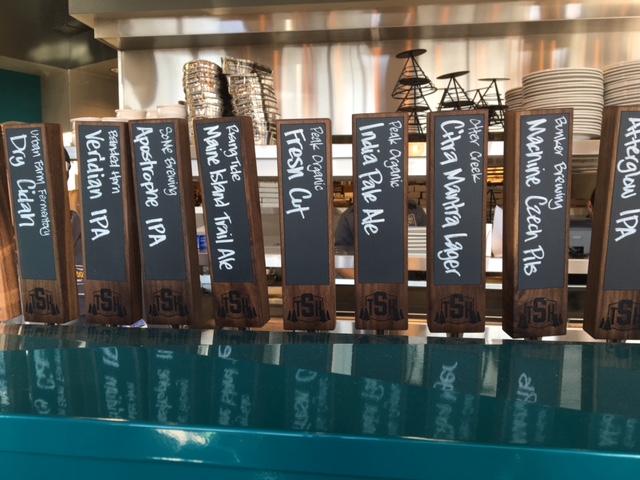 Urban Farm Fermentory
Dry Cidah
Banded Horn
Veridian IPA
SoMe Brewing
Apostrophe IPA
Rising Tide
Maine Island Trail Ale
Peak Organic
Fresh Cut
Peak Organic
India Pale Ale
Otter Creek
Citra Mantra Lager
Bunker Brewing
Machine Czech Pils
Afterglow IPA
TSH
TSH
TSH
TSH
TSH
TSH
TSH
TSH
TSH